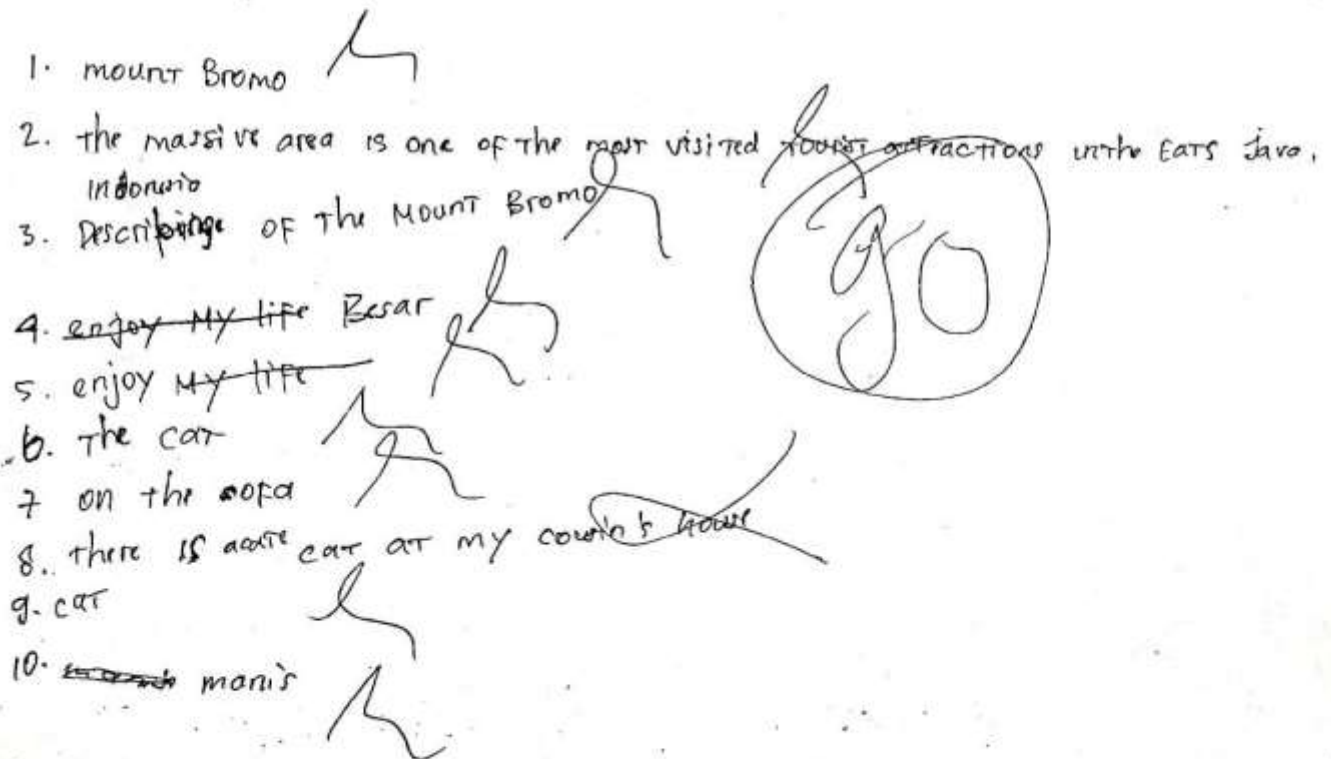 1. mount Bromo
2. the massive area is one of the most visited tourist attractions in the Eats Java,
indonesia
3. Describing of the Mount Bromo
90
4. enjoy My life Besar
5. enjoy My life
6. The cat
7 on the sofa
8. there is acute cat at my cousin's house
9. cat
10. manis